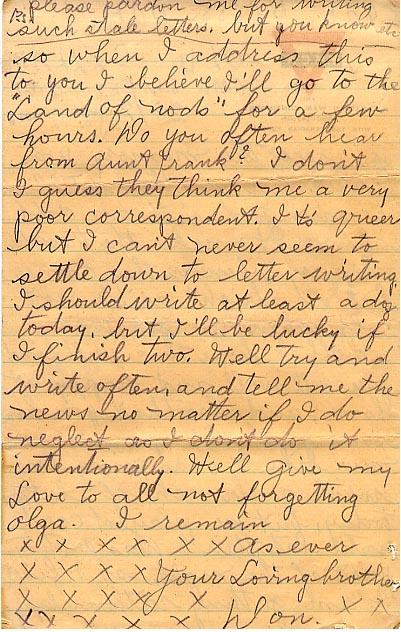 Ps please pardon me for writing
such stale letters. but you know etc
so when I address this
to you I believe I'll go to the
"Land of nods" for a few
hours. Do you often hear
from Aunt Frank? I don't
I guess they think me a very
poor correspondent. I ts' queer
but I can't never seem to
settle down to letter writing
I should write at least a doz
today, but I'll be lucky if
I finish two. Well try and
write often, and tell me the
news no matter if I do
neglect as I don't do it
intentionally. Well give my
Love to all not forgetting
Olga. I remain
x x x x x x As ever
x x x x Your Loving brother
x x x x x
x x x x Don. x x